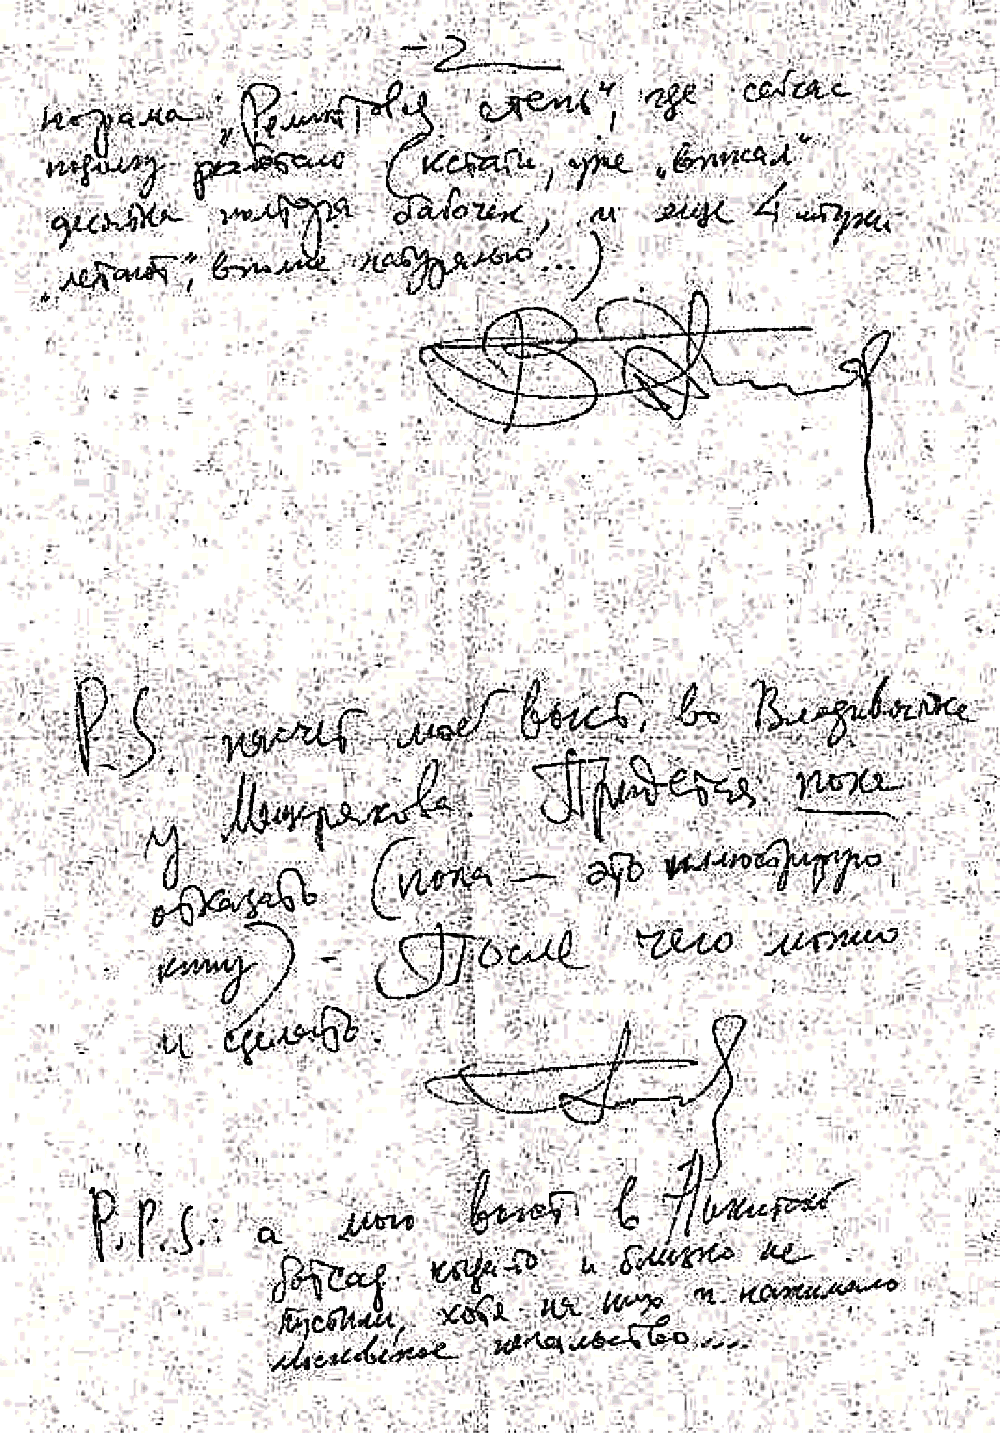 - 2
норама „Реликтовая степь“, где сейчас
подолгу работаю (кстати, уже „вписал“
десятка полтора бабочек, и еще 4 штуки
„летают“, вполне натурально...)
P.S. насчет моей выст. во Владивостоке
у Мещерякова. Придется пока
отказать (пока – это иллюстрирую
книгу) – После чего можно
и сделать.
P.P.S.: а мою выст. в Никитский
ботсад когда-то и близко не
пустили, хотя на них и нажимало
московское начальство....